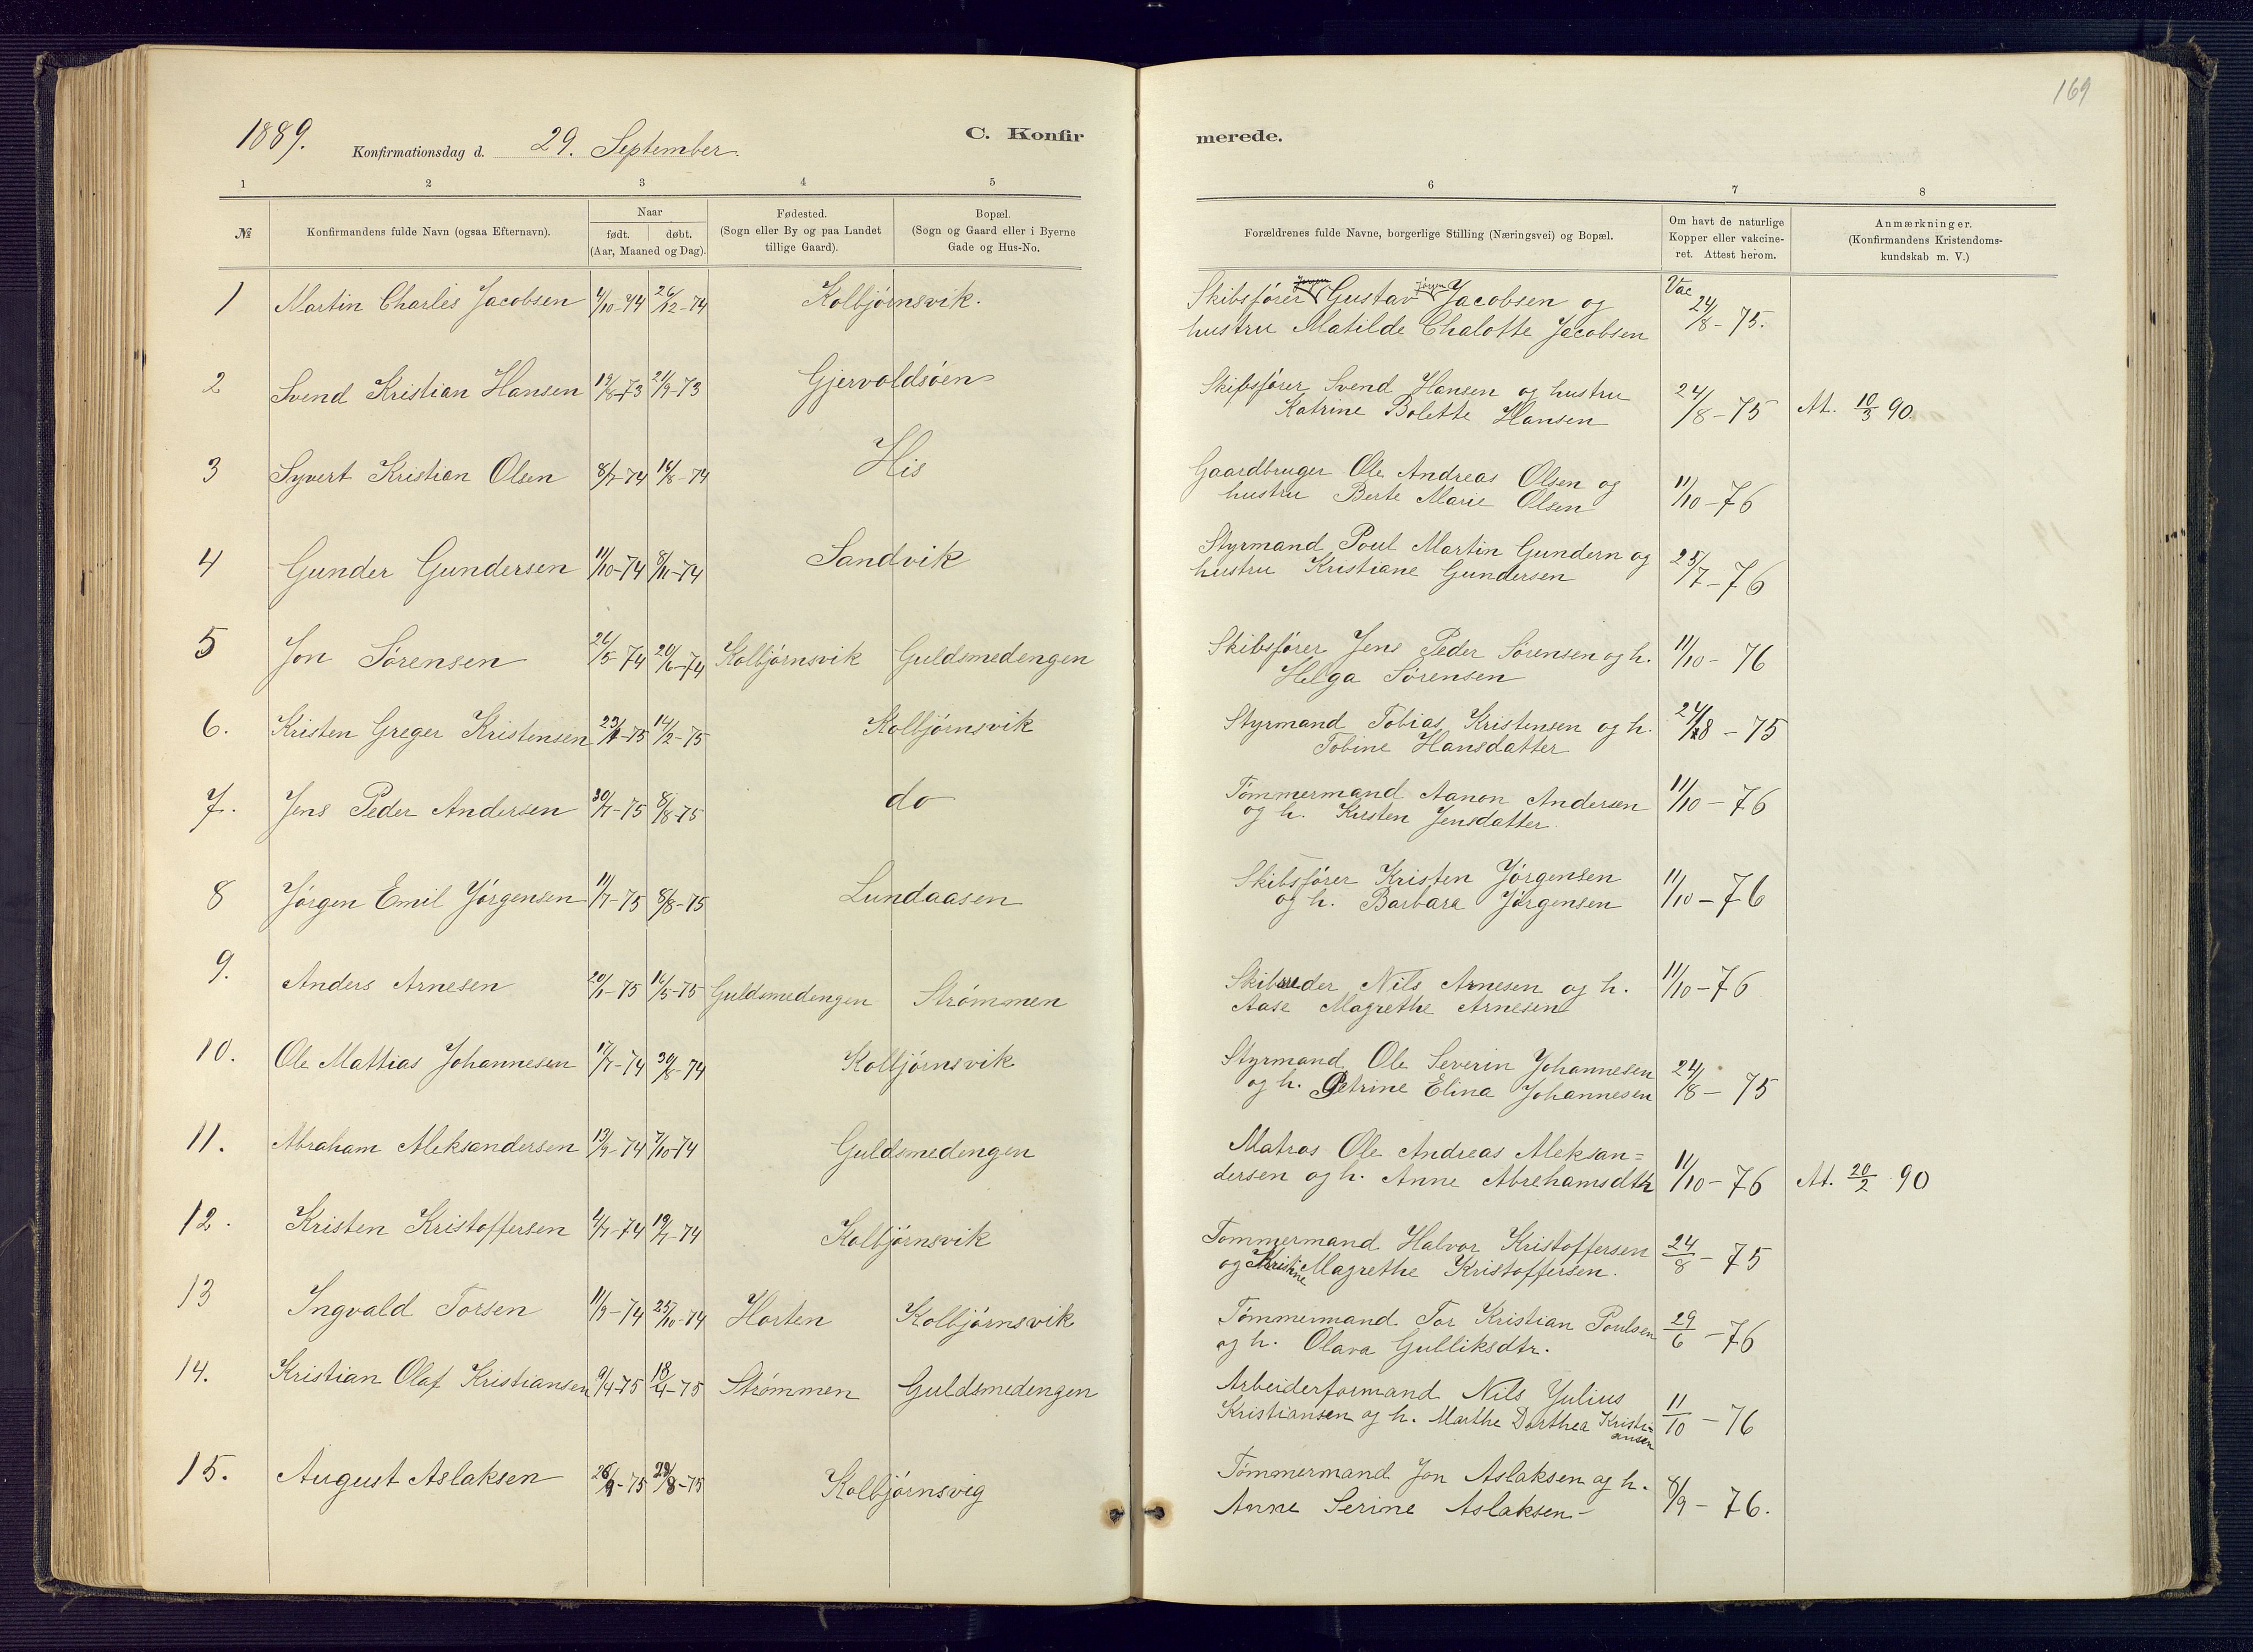 169
1889.
Konfirmationsdag d. 29. September.
C. Konfir
merede.
1 2 3 4 5 6 7 8
№
Konfirmandens fulde Navn (ogsaa Efternavn).
Naar
født. døbt.
(Aar, Maaned og Dag).
Fødested.
(Sogn eller By og paa Landet
tillige Gaard).
Bopæl.
(Sogn og Gaard eller i Byerne
Gade og Hus-No.
Forældrenes fulde Navne, borgerlige Stilling (Næringsvei) og Bopæl.
Om havt de naturlige
Kopper eller vakcine-
ret. Attest herom.
Anmærkninger.
(Konfirmandens Kristendoms-
kundskab m. V.)
1 Martin Charles Jacobsen 4/10-74 26/12-74 Kolbjørnsvik.
Skibsfører Gustav Jørgen Jacobsen og
hustru Matilde Chalotte Jacobsen
Vac 24/8-75.
2 Svend Kristian Hansen 19/8-73 21/9-73 Gjervoldsøen
Skibsfører Svend Hansen og hustru
Katrine Bolette Hansen
24/8-75 At. 10/3 90.
3 Syvert Kristian Olsen 8/7-74 16/8-74 His
Gaardbruger Ole Andreas Olsen og
hustru Berte Marie Olsen
11/10-76
4 Gunder Gundersen 11/10-74 8/11-74 Sandvik
Styrmand Poul Martin Gundern og
hustru Kristiane Gundersen
25/7-76
5 Jon Sørensen 26/5-74 20/6-74 Kolbjørnsvik Guldsmedengen
Skibsfører Jens Peder Sørensen og h.
Helga Sørensen
11/10-76
6. Kristen Greger Kristensen 23/1-75 14/2-75 Kolbjørnsvik
Styrmand Tobias Kristensen og h.
Tobine Hansdatter
24/8-75
7. Jens Peder Andersen 30/7-75 8/8-75 do
Tømmermand Aanon Andersen
og h. Kirsten Jensdatter.
11/10-76
8 Jørgen Emil Jørgensen 11/7-75 8/8-75 Lundaasen
Skibsfører Kristen Jørgensen
og h. Barbara Jørgensen
11/10-76
9. Anders Arnesen 20/1-75 16/5-75 Guldsmedengen Strømmen
Skibsreder Nils Arnesen og h.
Aase Magrethe Arnesen
11/10-76
10. Ole Mattias Johannesen 17/7-74 30/8-74 Kolbjørnsvik
Styrmand Ole Severin Johannesen
og h. Petrine Elina Johannesen
24/8-75
11. Abraham Aleksandersen 13/9-74 7/10-74 Guldsmedengen
Matros Ole Andreas Aleksan=
dersen og h. Anne Abrehamsdtr
11/10-76 At. 20/2 90
12. Kristen Kristoffersen 4/7-74 19/7-74 Kolbjørnsvik
Tømmermand Halvor Kristoffersen
og Kristine Magrethe Kristoffersen.
24/8-75
13 Ingvald Torsen 11/9-74 25/10-74 Horten Kolbjørnsvik
Tømmermand Tor Kristian Poulsen
og h. Olava Gulliksdtr.
29/6-76
14. Kristian Olaf Kristiansen 9/4-75 18/4-75 Strømmen Guldsmedengen
Arbeiderformand Nils Julius
Kristiansen og h. Marthe Dorthea Kristi=
ansen
11/10-76
15. August Aslaksen 26/9-75 29/8-75 Kolbjørnsvig
Tømmermand Jon Aslaksen og h.
Anne Serine Aslaksen-
8/9-76.